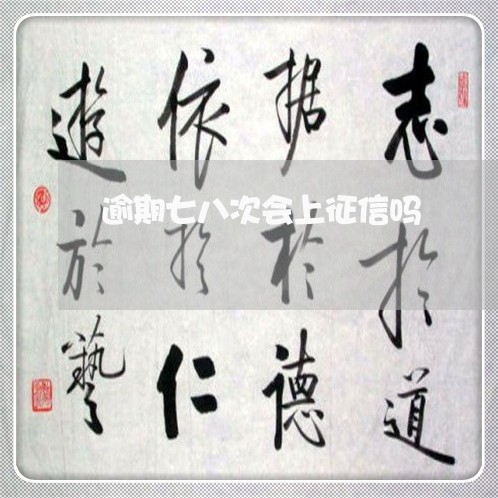 志扵道
据於德
依扵仁
遊於藝
逾期七八次会上征信吗